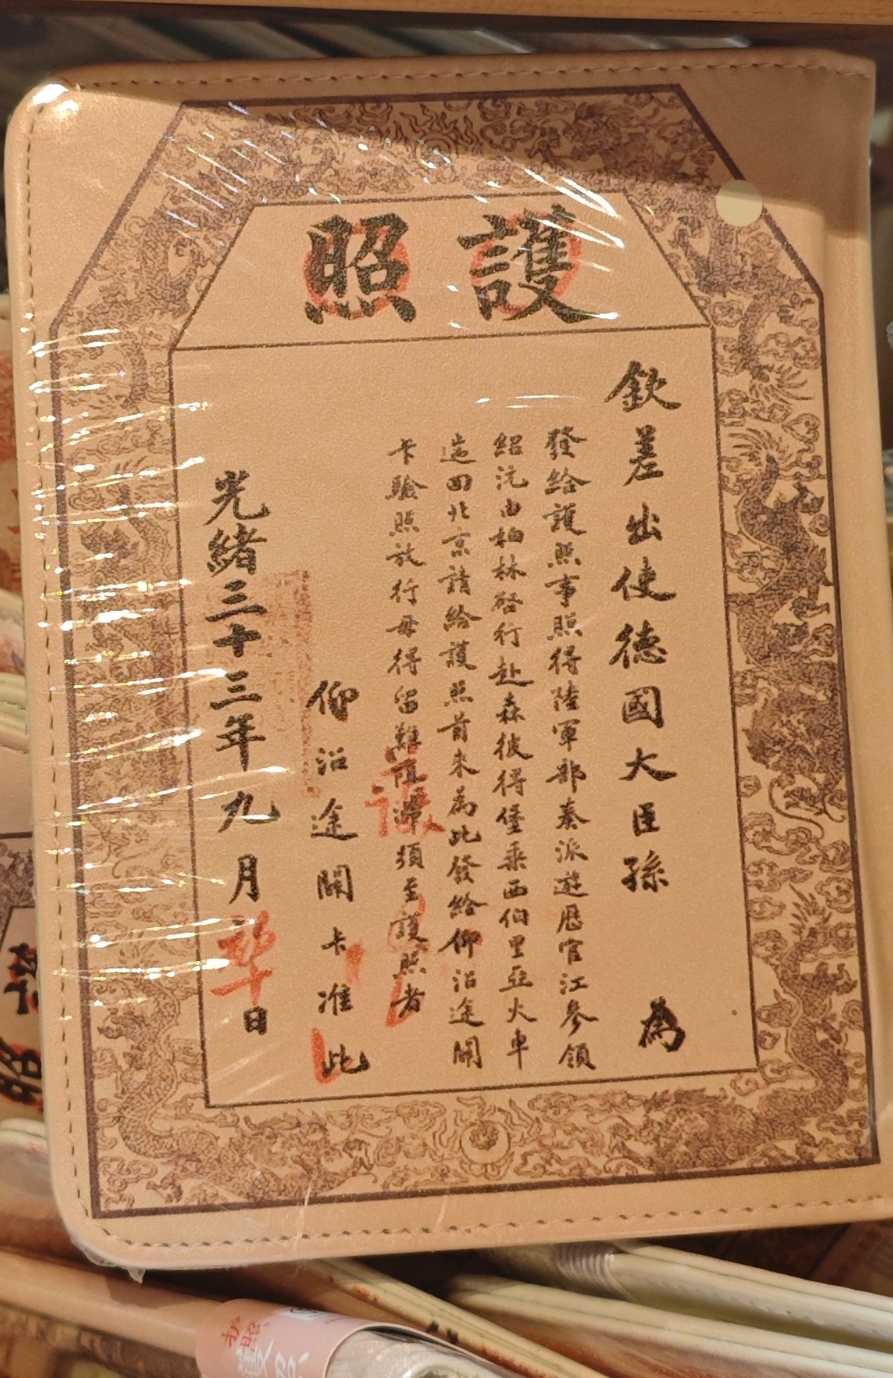 護照
欽差出使德國大臣孫 為
發給護照事照得陸軍部奏派遊歷官江參領
紹沅由柏林啓行赴森彼得堡乘西伯里亞火車
遄回北京請給護照前來為此發給仰沿途關
卡驗照放行毋得留難阻滯須至護照者
仰沿途關卡准此
光緒三十三年九月 日